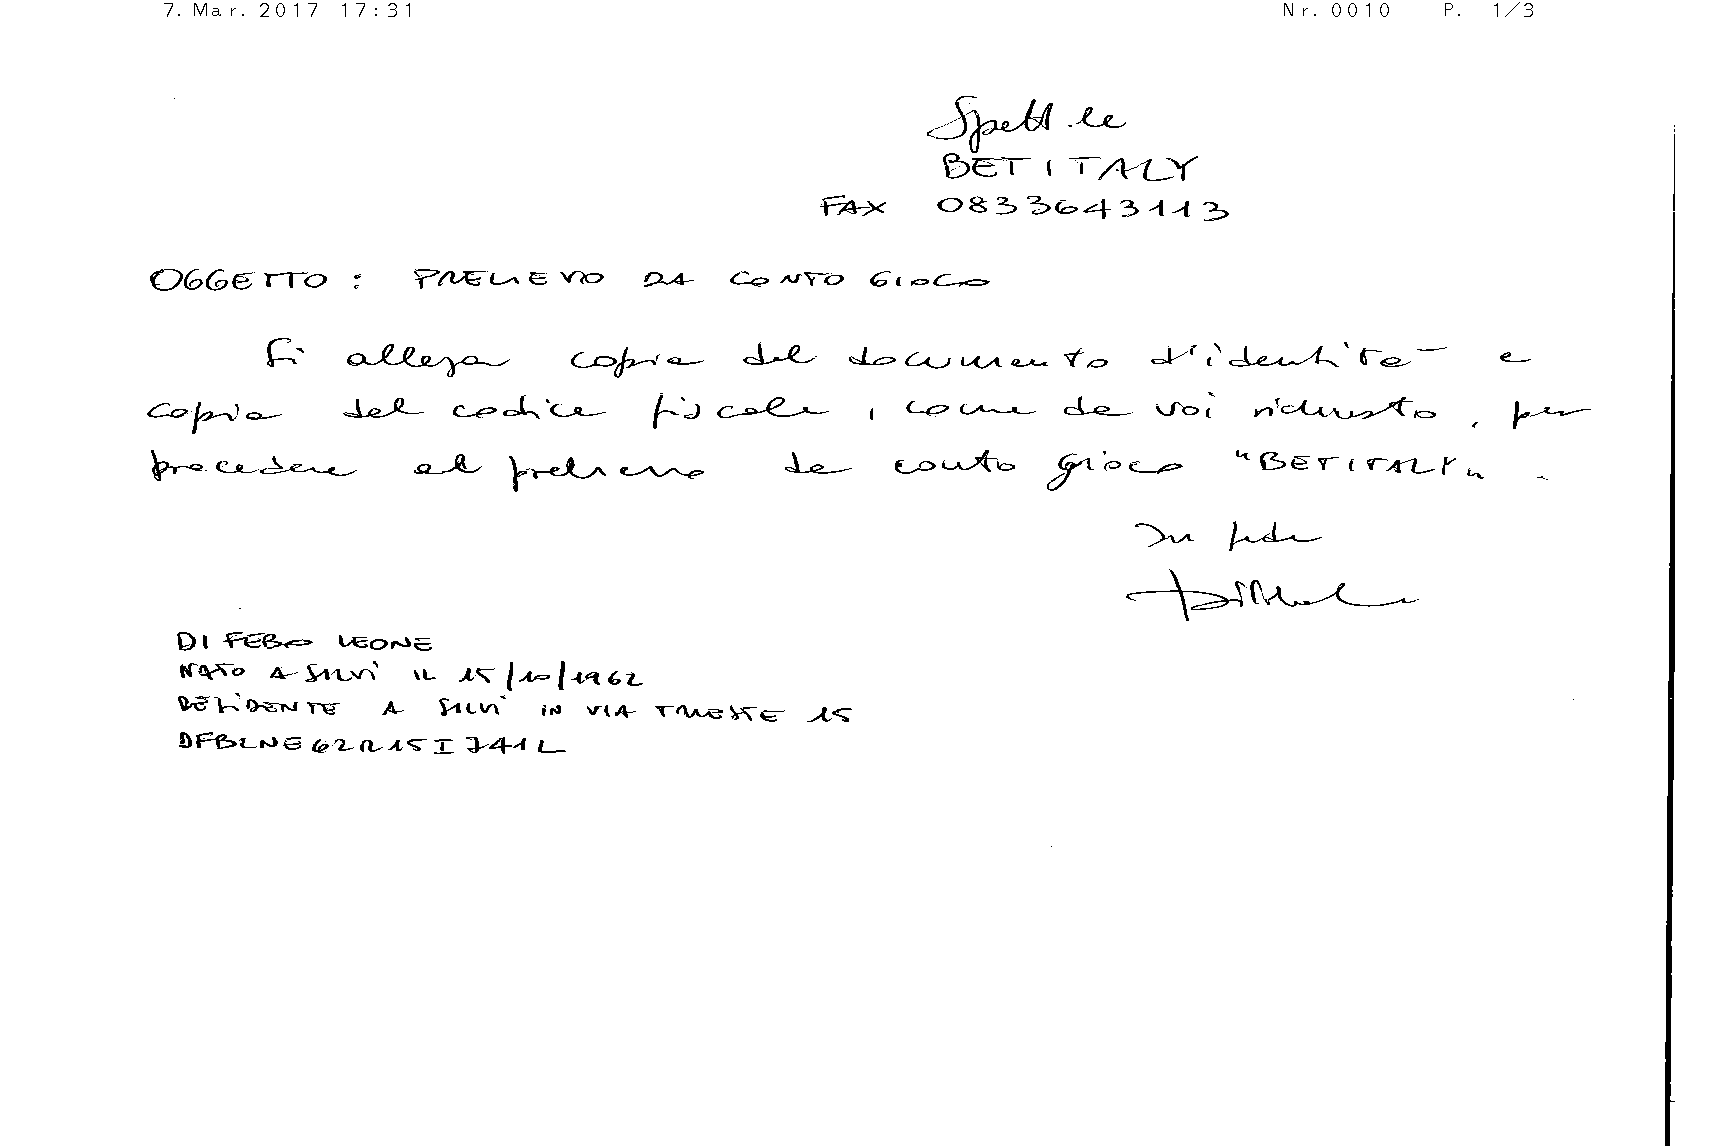 7. Mar. 2017 17:31 Nr. 0010 P. 1/3
Spett.le
BETITALY
FAX 0833643113
OGGETTO : PRELIEVO DA CONTO GIOCO
Si allega copia del documento d'identità e
copia del codice fiscale, come da voi richiesto, per
procedere al prelievo da conto gioco "BETITALY".
In fede
DI FEBO LEONE
NATO A SILVI IL 15/10/1962
RESIDENTE A SILVI IN VIA TRIESTE 15
DFBLNE62R15I741L